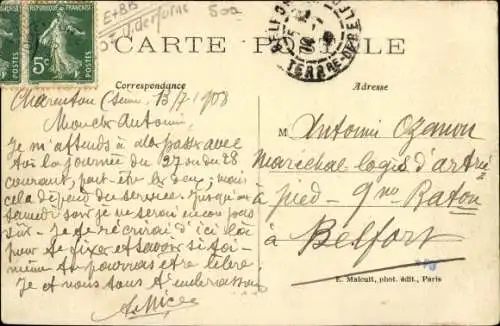 500
RÉPUBLIQUE FRANÇAISE
5c
POSTES
CARTE POSTALE
BELFORT
TERRE-DE-BELFORT
Correspondance
Adresse
Charenton (Seine) 13/7-1908
Mon cher Antonin,
Je m'attends à aller passer avec
toi la journée du 27 ou du 28
courant, peut être les deux; mais
cela dépend du service. Jusqu'au
samedi soir je ne serai encore pas
sûr. Je te récrirai d'ici là
pour te fixer et savoir si toi-
même tu pourras être libre.
Je et nous tous t'embrassons
M Antonin Ozanon
Maréchal logis d'artie
à pied - 9me Baton
à Belfort
E. Malcuit, phot. édit., Paris